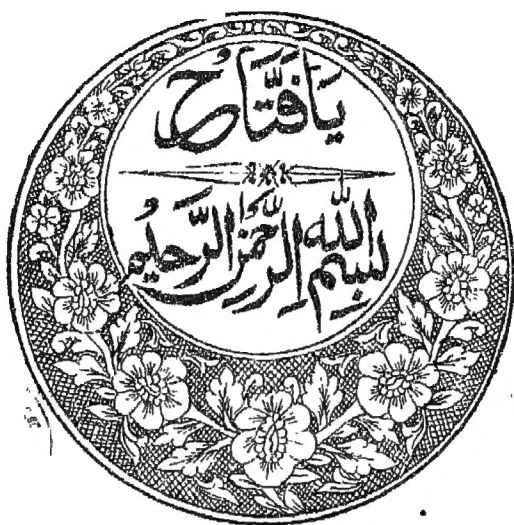 يَا فَتَّاحُ
بسم الله الرَّحمٰن الرَّحيمُ